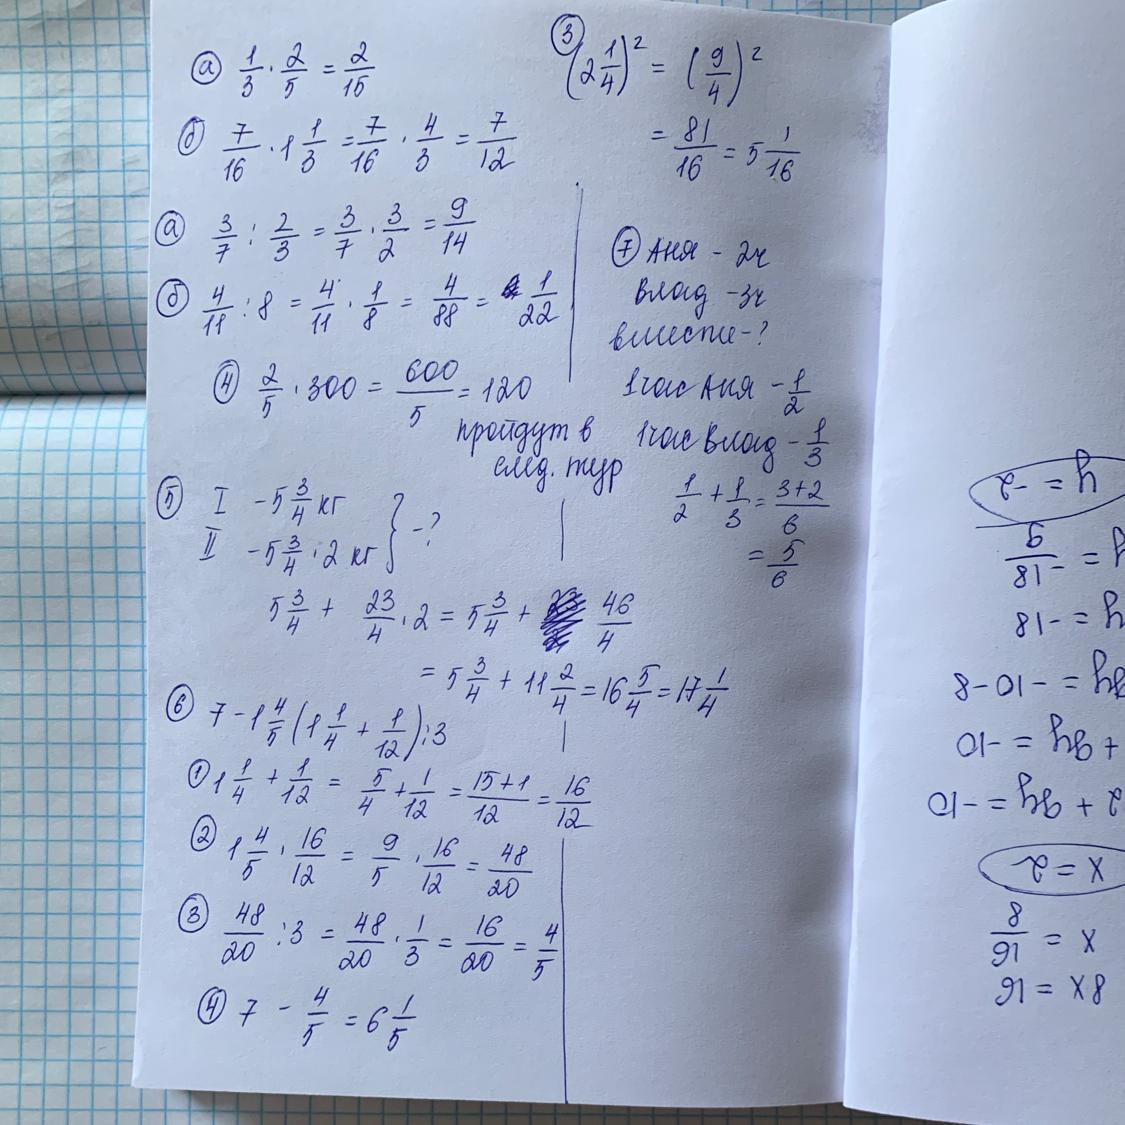 а) 1/3 · 2/5 = 2/15
б) 7/16 · 1 1/3 = 7/16 · 4/3 = 7/12
а) 3/7 : 2/3 = 3/7 · 3/2 = 9/14
б) 4/11 : 8 = 4/11 · 1/8 = 4/88 = 1/22
4) 2/5 · 300 = 600/5 = 120
пройдут в
след. тур
5) I - 5 3/4 кг
II - 5 3/4 · 2 кг } - ?
5 3/4 + 23/4 · 2 = 5 3/4 + 46/4
= 5 3/4 + 11 2/4 = 16 5/4 = 17 1/4
6) 7 - 1 4/5 (1 1/4 + 1/12) : 3
1) 1 1/4 + 1/12 = 5/4 + 1/12 = 15+1/12 = 16/12
2) 1 4/5 · 16/12 = 9/5 · 16/12 = 48/20
3) 48/20 : 3 = 48/20 · 1/3 = 16/20 = 4/5
4) 7 - 4/5 = 6 1/5
3) (2 1/4)² = (9/4)²
= 81/16 = 5 1/16
7) Аня - 2ч
Влад - 3ч
вместе - ?
1 час Аня - 1/2
1 час Влад - 1/3
1/2 + 1/3 = 3+2/6
= 5/6
8x = 16
x = 16/8
x = 2
2 + 9y = -10
+ 9y = -10
9y = -10-8
y = -18
y = -18/9
y = -2